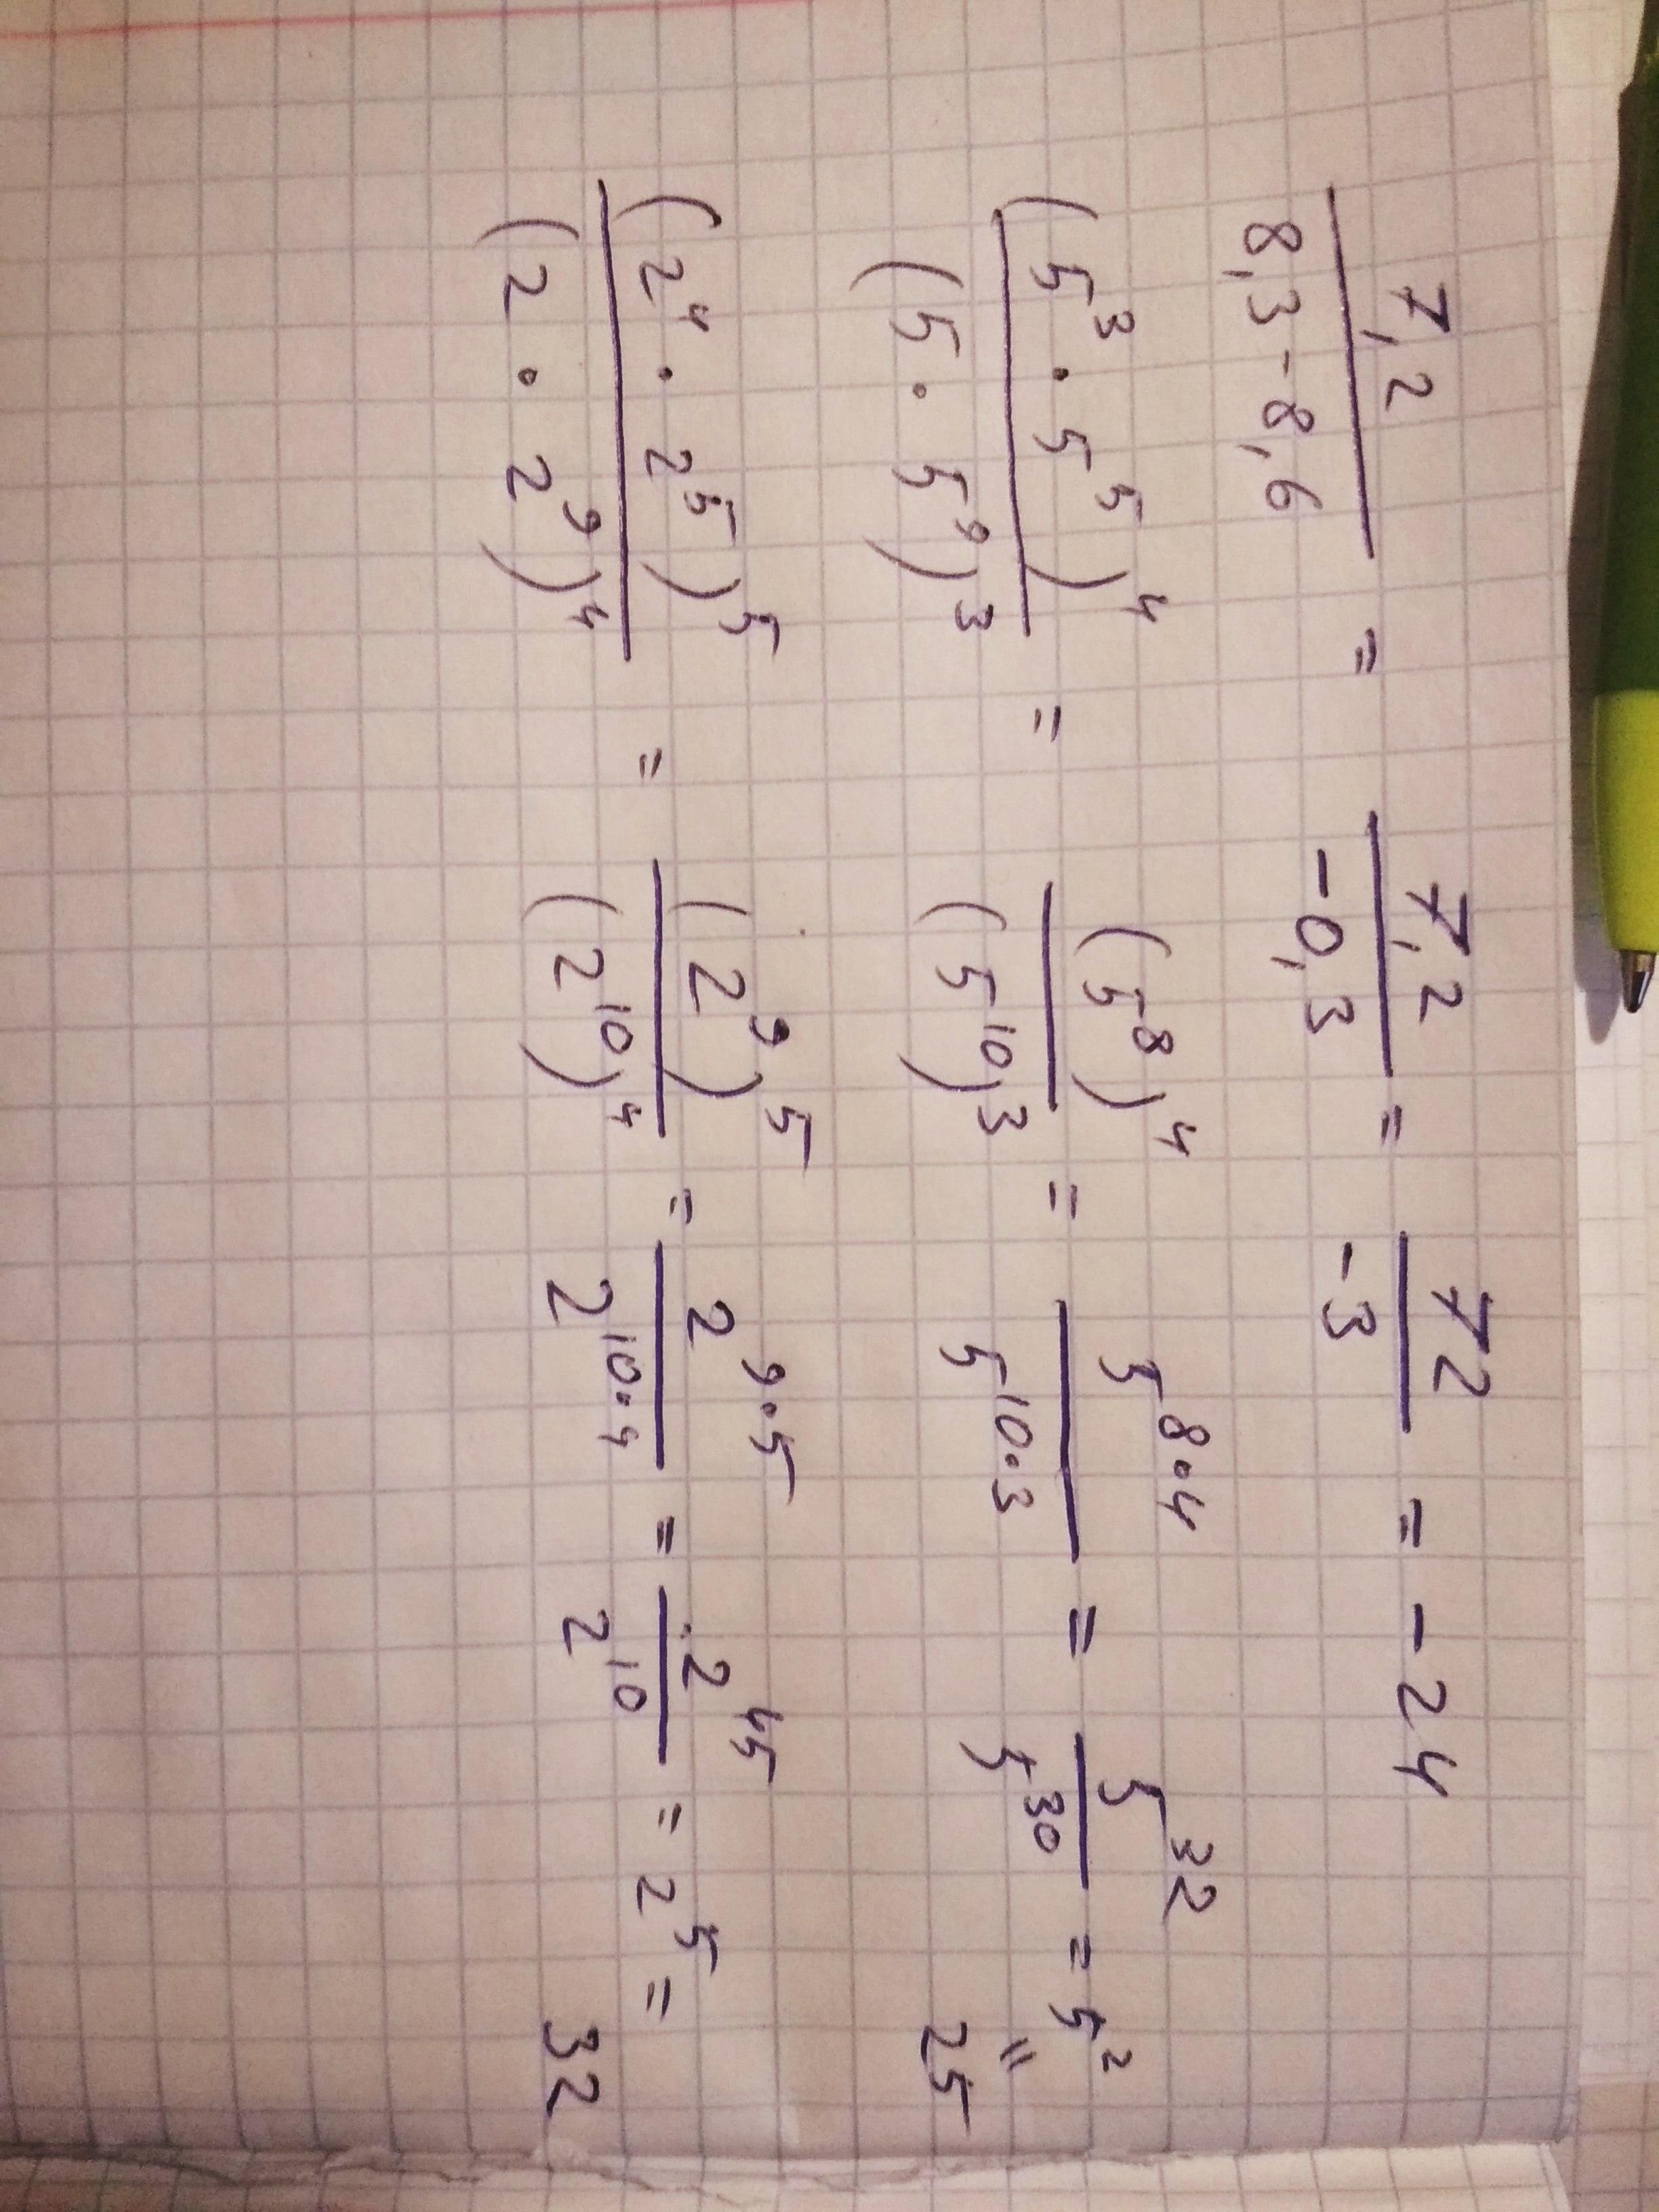 7,2 / (8,3 - 8,6) = 7,2 / (-0,3) = 72 / (-3) = -24
(5³ · 5⁵)⁴ / (5 · 5⁹)³ = (5⁸)⁴ / (5¹⁰)³ = 5⁸·⁴ / 5¹⁰·³ = 5³² / 5³⁰ = 5² = 25
(2⁴ · 2⁵)⁵ / (2 · 2⁹)⁴ = (2⁹)⁵ / (2¹⁰)⁴ = 2⁹·⁵ / 2¹⁰·⁴ = 2⁴⁵ / 2¹⁰ = 2⁵ = 32